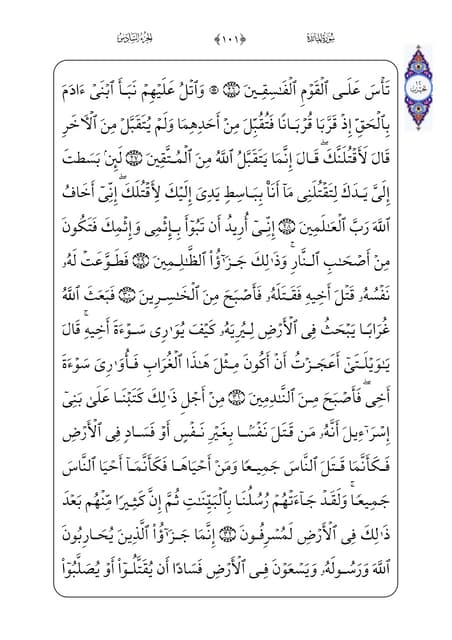 سُورَةُ المَائِدَة ﴿١٠١﴾ الجُزءُ السَّادِسُ
تَأْسَ عَلَى ٱلْقَوْمِ ٱلْفَاسِقِينَ ۝٢٦ ۞ وَٱتْلُ عَلَيْهِمْ نَبَأَ ٱبْنَىْ ءَادَمَ
بِٱلْحَقِّ إِذْ قَرَّبَا قُرْبَانًا فَتُقُبِّلَ مِنْ أَحَدِهِمَا وَلَمْ يُتَقَبَّلْ مِنَ ٱلْأَخَرِ
قَالَ لَأَقْتُلَنَّكَ ۖ قَالَ إِنَّمَا يَتَقَبَّلُ ٱللَّهُ مِنَ ٱلْمُتَّقِينَ ۝٢٧ لَئِنۢ بَسَطتَ
إِلَىَّ يَدَكَ لِتَقْتُلَنِى مَآ أَنَا۠ بِبَاسِطٍ يَدِىَ إِلَيْكَ لِأَقْتُلَكَ ۖ إِنِّىٓ أَخَافُ
ٱللَّهَ رَبَّ ٱلْعَالَمِينَ ۝٢٨ إِنِّىٓ أُرِيدُ أَن تَبُوٓأَ بِإِثْمِى وَإِثْمِكَ فَتَكُونَ
مِنْ أَصْحَابِ ٱلنَّارِ ۚ وَذَالِكَ جَزَٰٓؤُا۟ ٱلظَّالِمِينَ ۝٢٩ فَطَوَّعَتْ لَهُۥ
نَفْسُهُۥ قَتْلَ أَخِيهِ فَقَتَلَهُۥ فَأَصْبَحَ مِنَ ٱلْخَاسِرِينَ ۝٣٠ فَبَعَثَ ٱللَّهُ
غُرَابًا يَبْحَثُ فِى ٱلْأَرْضِ لِيُرِيَهُۥ كَيْفَ يُوَارِى سَوْءَةَ أَخِيهِ ۚ قَالَ
يَاوَيْلَتَىٰٓ أَعَجَزْتُ أَنْ أَكُونَ مِثْلَ هَٰذَا ٱلْغُرَابِ فَأُوَارِىَ سَوْءَةَ
أَخِى ۖ فَأَصْبَحَ مِنَ ٱلنَّادِمِينَ ۝٣١ مِنْ أَجْلِ ذَالِكَ كَتَبْنَا عَلَىٰ بَنِىٓ
إِسْرَٰٓءِيلَ أَنَّهُۥ مَن قَتَلَ نَفْسًۢا بِغَيْرِ نَفْسٍ أَوْ فَسَادٍ فِى ٱلْأَرْضِ
فَكَأَنَّمَا قَتَلَ ٱلنَّاسَ جَمِيعًا وَمَنْ أَحْيَاهَا فَكَأَنَّمَآ أَحْيَا ٱلنَّاسَ
جَمِيعًا ۚ وَلَقَدْ جَآءَتْهُمْ رُسُلُنَا بِٱلْبَيِّنَاتِ ثُمَّ إِنَّ كَثِيرًا مِّنْهُم بَعْدَ
ذَالِكَ فِى ٱلْأَرْضِ لَمُسْرِفُونَ ۝٣٢ إِنَّمَا جَزَٰٓؤُا۟ ٱلَّذِينَ يُحَارِبُونَ
ٱللَّهَ وَرَسُولَهُۥ وَيَسْعَوْنَ فِى ٱلْأَرْضِ فَسَادًا أَن يُقَتَّلُوٓا۟ أَوْ يُصَلَّبُوٓا۟